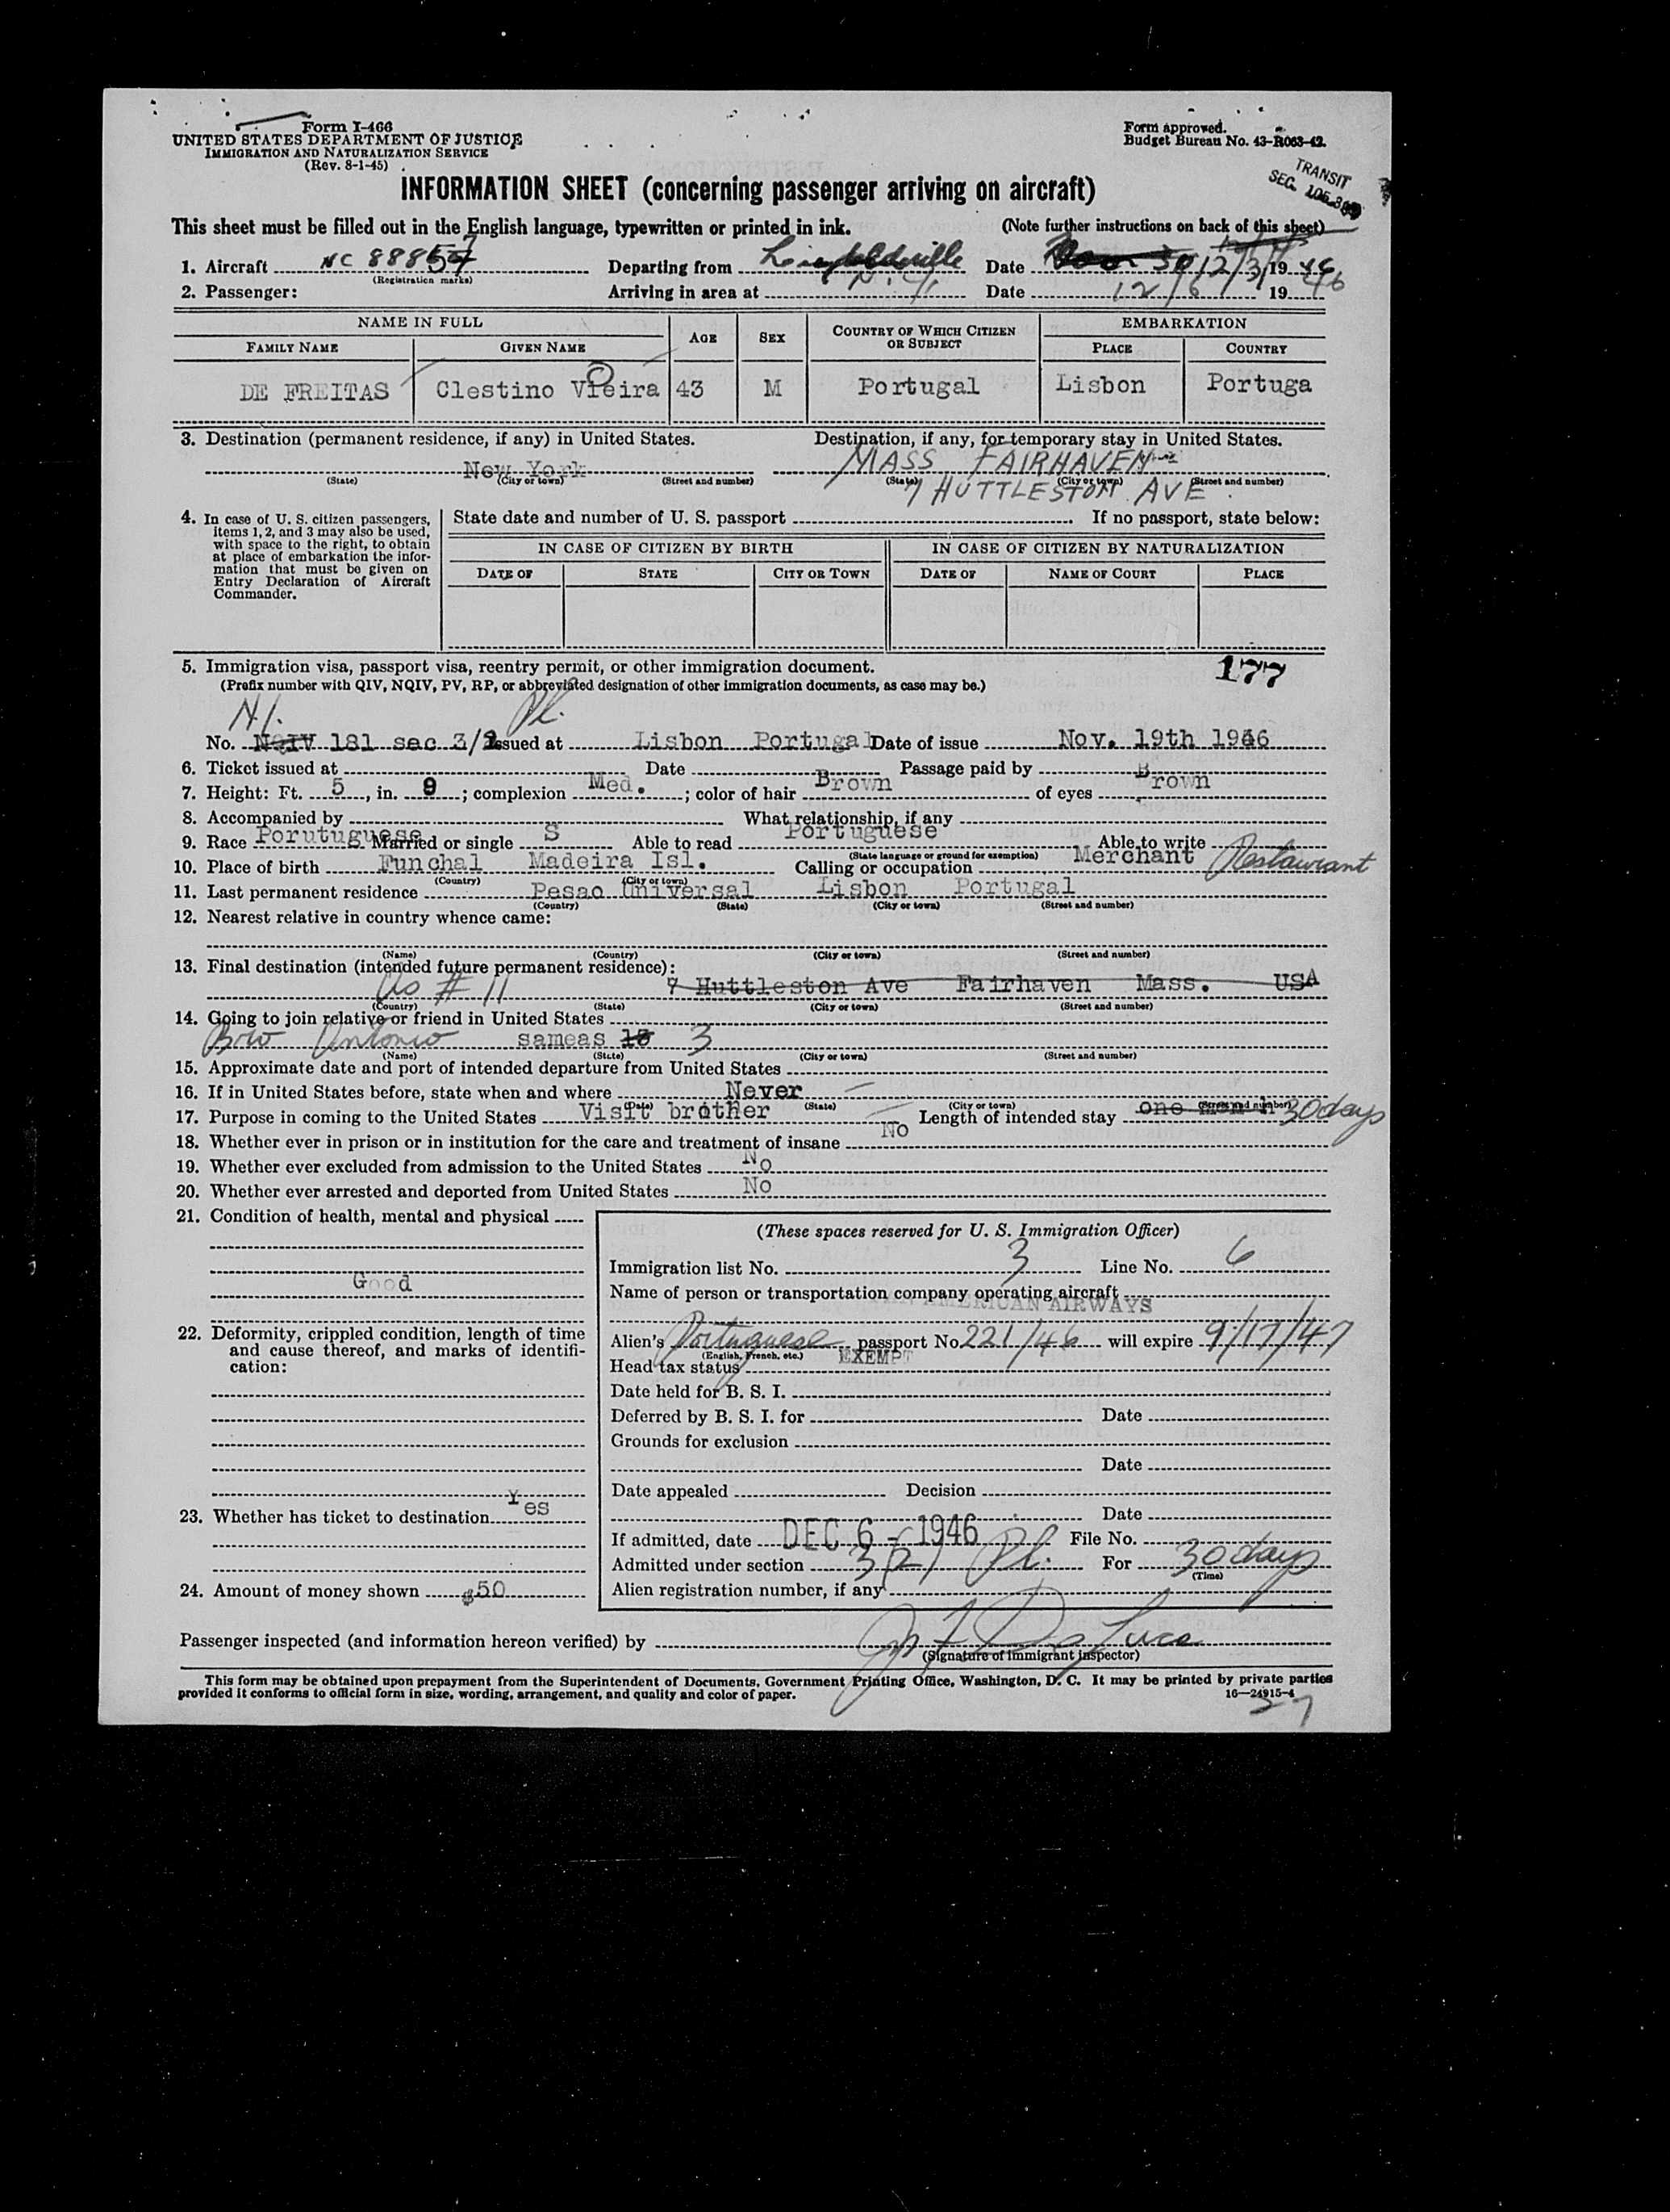 Form I-466
UNITED STATES DEPARTMENT OF JUSTICE
IMMIGRATION AND NATURALIZATION SERVICE
(Rev. 8-1-45)
Form approved.
Budget Bureau No. 43-R063-42.
TRANSIT
SEC.
INFORMATION SHEET (concerning passenger arriving on aircraft)
This sheet must be filled out in the English language, typewritten or printed in ink. (Note further instructions on back of this sheet)
1. Aircraft NC 88857 Departing from Date 12/3/1946
(Registration marks)
2. Passenger: Arriving in area at N.Y. Date 12/6 1946
NAME IN FULL AGE SEX COUNTRY OF WHICH CITIZEN OR SUBJECT EMBARKATION
FAMILY NAME GIVEN NAME PLACE COUNTRY
DE FREITAS Clestino Vieira 43 M Portugal Lisbon Portuga
3. Destination (permanent residence, if any) in United States. Destination, if any, for temporary stay in United States.
New York MASS FAIRHAVEN
(State) (City or town) (Street and number) (State) (City or town) (Street and number)
7 HUTTLESTON AVE
4. In case of U. S. citizen passengers, items 1, 2, and 3 may also be used, with space to the right, to obtain at place of embarkation the information that must be given on Entry Declaration of Aircraft Commander.
State date and number of U. S. passport If no passport, state below:
IN CASE OF CITIZEN BY BIRTH IN CASE OF CITIZEN BY NATURALIZATION
DATE OF STATE CITY OR TOWN DATE OF NAME OF COURT PLACE
5. Immigration visa, passport visa, reentry permit, or other immigration document. 177
(Prefix number with QIV, NQIV, PV, RP, or abbreviated designation of other immigration documents, as case may be.)
N.I. Pl.
No. NQIV 181 sec 3/2 Issued at Lisbon Portugal Date of issue Nov. 19th 1946
6. Ticket issued at Date Passage paid by
7. Height: Ft. 5, in. 9; complexion Med.; color of hair Brown of eyes Brown
8. Accompanied by What relationship, if any
9. Race Porutuguese Married or single S Able to read Portuguese Able to write
(State language or ground for exemption)
10. Place of birth Funchal Madeira Isl. Calling or occupation Merchant Restaurant
(Country) (City or town)
11. Last permanent residence Pesao Universal Lisbon Portugal
(Country) (State) (City or town) (Street and number)
12. Nearest relative in country whence came:
(Name) (Country) (City or town) (Street and number)
13. Final destination (intended future permanent residence):
As # 11 7 Huttleston Ave Fairhaven Mass. USA
(Country) (State) (City or town) (Street and number)
14. Going to join relative or friend in United States
Bro Antonio sameas 13 3
(Name) (State) (City or town) (Street and number)
15. Approximate date and port of intended departure from United States
16. If in United States before, state when and where Never
(Date) (State) (City or town) (Street and number)
17. Purpose in coming to the United States Visit brother Length of intended stay one month 30 days
18. Whether ever in prison or in institution for the care and treatment of insane No
19. Whether ever excluded from admission to the United States No
20. Whether ever arrested and deported from United States No
21. Condition of health, mental and physical
Good
22. Deformity, crippled condition, length of time and cause thereof, and marks of identification:
23. Whether has ticket to destination Yes
24. Amount of money shown $50
(These spaces reserved for U. S. Immigration Officer)
Immigration list No. 3 Line No. 6
Name of person or transportation company operating aircraft
PAN AMERICAN AIRWAYS
Alien's Portuguese passport No. 221/46 will expire 9/17/47
(English, French, etc.)
Head tax status EXEMPT
Date held for B. S. I.
Deferred by B. S. I. for Date
Grounds for exclusion
Date
Date appealed Decision
Date
If admitted, date DEC 6 - 1946 File No.
Admitted under section 3(2) Pl. For 30 days
(Time)
Alien registration number, if any
Passenger inspected (and information hereon verified) by
(Signature of immigrant inspector)
This form may be obtained upon prepayment from the Superintendent of Documents, Government Printing Office, Washington, D. C. It may be printed by private parties
provided it conforms to official form in size, wording, arrangement, and quality and color of paper. 16—24915-4
27